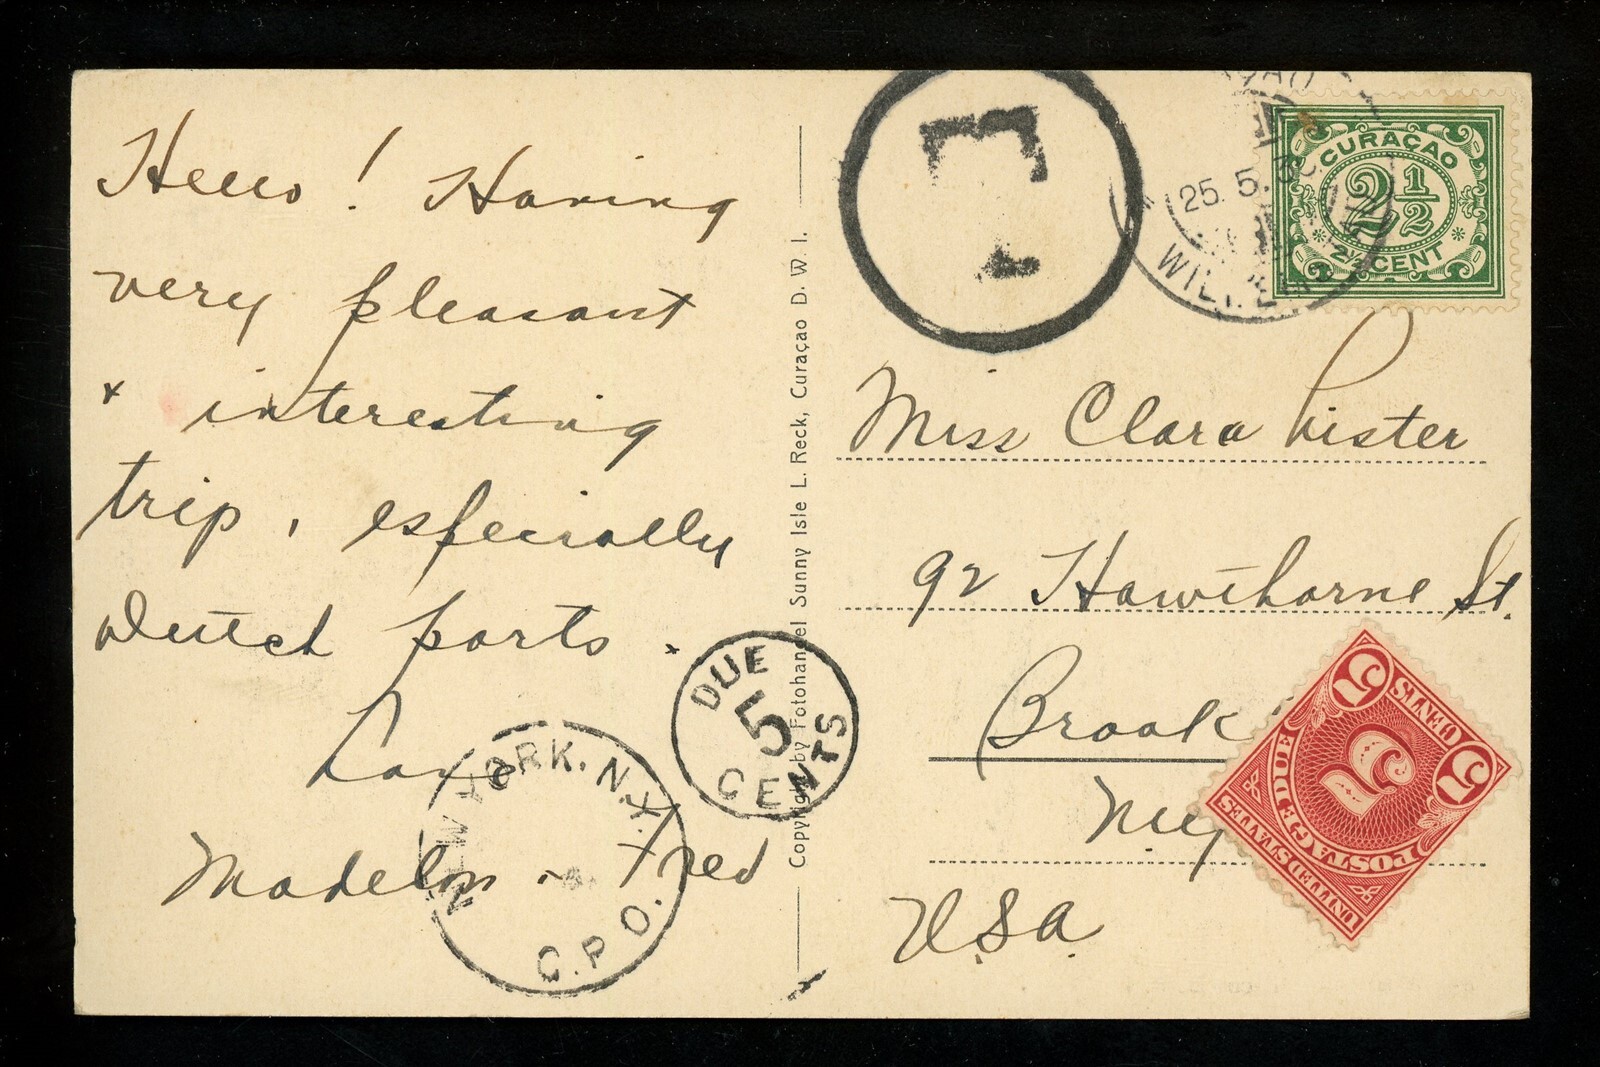 Hello! Having
very pleasant
+ interesting
trip, especially
Dutch ports.
Love
Madelon + Fred
NEW YORK, N.Y.
C.P.O.
DUE
5
CENTS
Copyright by Fotohandel Sunny Isle L. Reck, Curaçao D. W. I.
T
25. 5.
CURAÇAO
2½
2½ CENT
Miss Clara Lister
92 Hawthorne St.
Brook
U.S.A.
5 CENTS 5
5
UNITED STATES
POSTAGE DUE